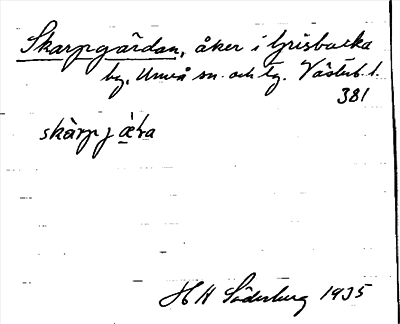 Skarpgärdan, åker i Grisbacka
by, Umeå sn. och tg. Västerb. l.
381
skàrpjæ̀ra
H H Söderberg 1935